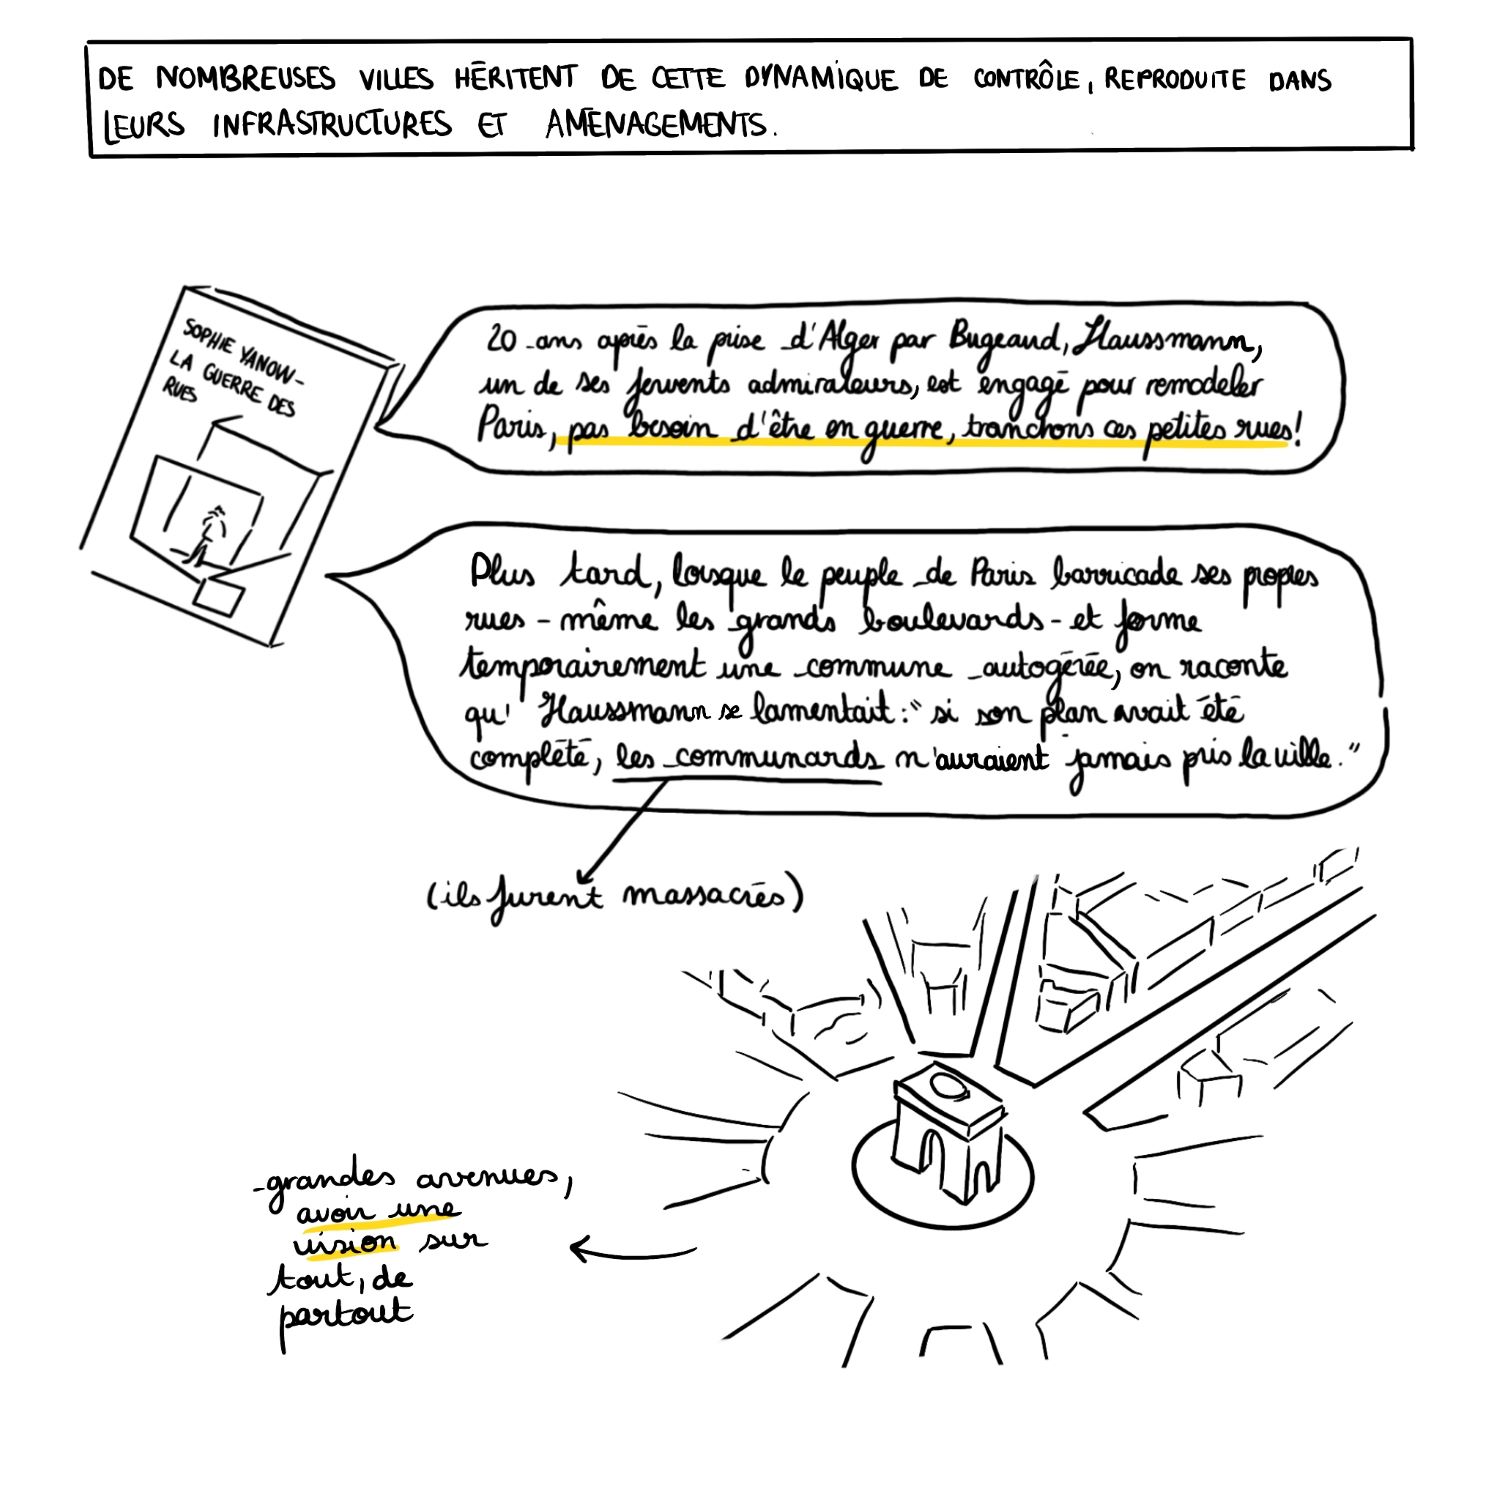 DE NOMBREUSES VILLES HÉRITENT DE CETTE DYNAMIQUE DE CONTRÔLE, REPRODUITE DANS
LEURS INFRASTRUCTURES ET AMÉNAGEMENTS.
SOPHIE YANOW -
LA GUERRE DES
RUES
20 ans après la prise d'Alger par Bugeaud, Haussmann,
un de ses fervents admirateurs, est engagé pour remodeler
Paris, pas besoin d'être en guerre, tranchons ces petites rues!
Plus tard, lorsque le peuple de Paris barricade ses propres
rues - même les grands boulevards - et forme
temporairement une commune autogérée, on raconte
qu' Haussmann se lamentait : "si son plan avait été
complété, les communards n'auraient jamais pris la ville."
(ils furent massacrés)
grandes avenues,
avoir une
vision sur
tout, de
partout